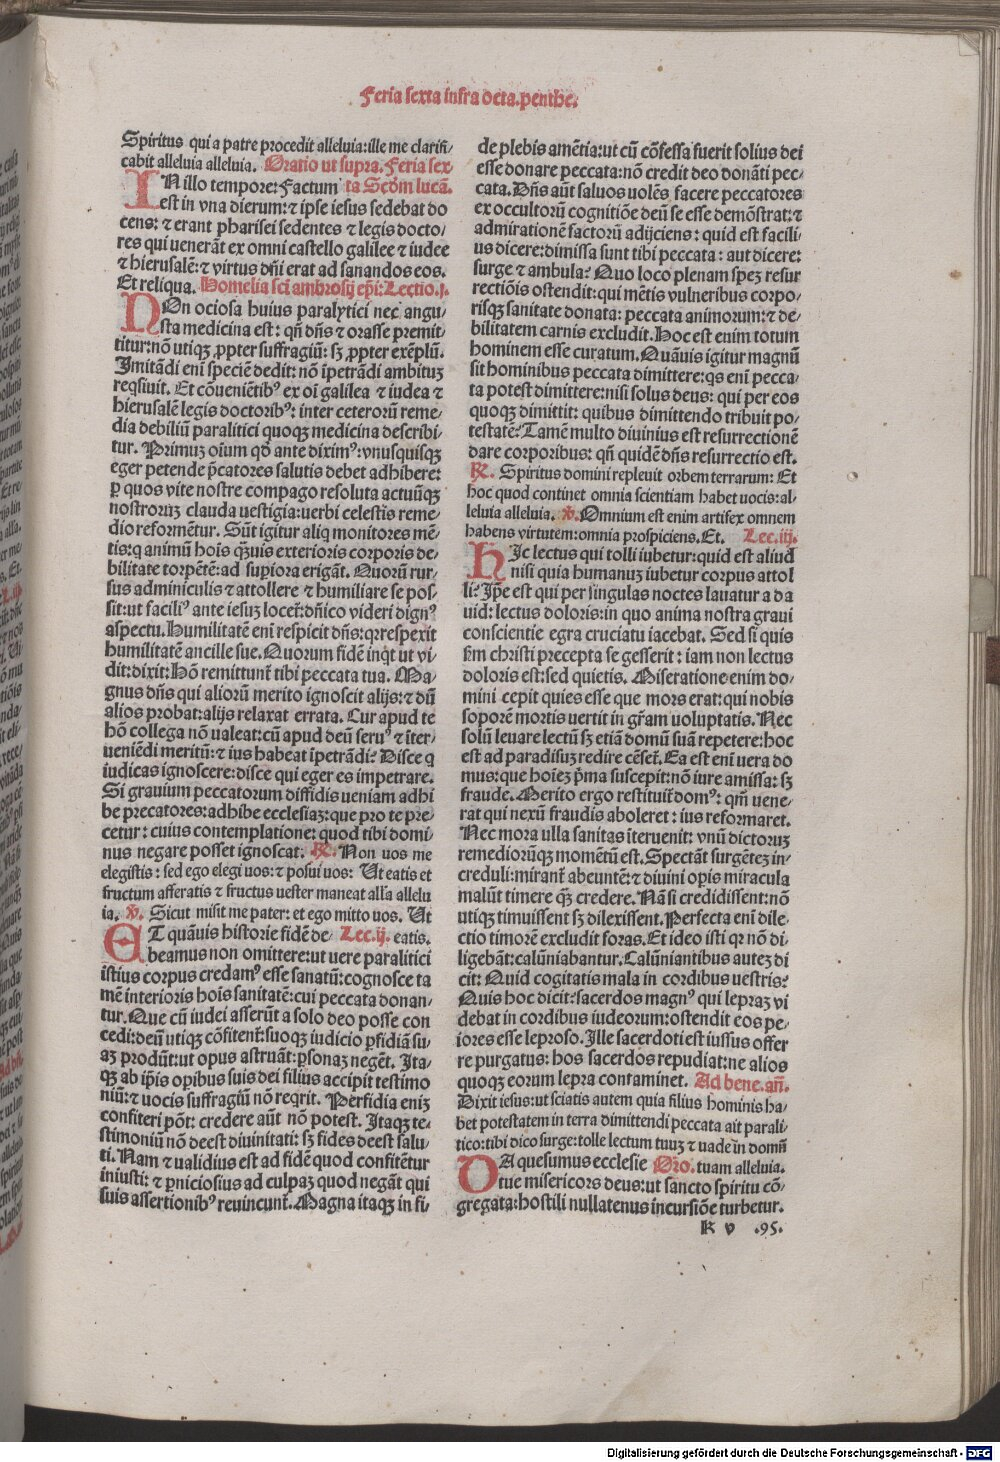 Feria sexta infra octa. penthe.
Spiritus qui a patre procedit alleluia: ille me clarifi/
cabit alleluia alleluia. Oratio ut supra. Feria sex
IN illo tempore: Factum ta Scðm lucã.
est in vna dierum: ⁊ ipse iesus sedebat do
cens: ⁊ erant pharisei sedentes ⁊ legis docto/
res qui venerãt ex omni castello galilee ⁊ iudee
⁊ hierusalẽ: ⁊ virtus dñi erat ad sanandos eos.
Et reliqua. Homelia scï ambrosij epï: Lectio .j.
NOn ociosa huius paralytici nec angu/
sta medicina est: qñ dñs ⁊ orasse premit/
titur: nõ utiqꝫ ꝓpter suffragiũ: sꝫ ꝓpter exẽplũ.
Imitãdi enï speciẽ dedit: nõ ïpetrãdi ambituꝫ
reqsiuit. Et cõueniẽtibꝰ ex oï galilea ⁊ iudea ⁊
hierusalẽ legis doctoribꝰ: inter ceterorũ reme/
dia debiliũ paralitici quoqꝫ medicina describi/
tur. Primuꝫ oïum qð ante diximꝰ: vnusquisqꝫ
eger petende p̃catores salutis debet adhibere:
ꝑ quos vite nostre compago resoluta actuũqꝫ
nostroruꝫ clauda uestigia: uerbi celestis reme/
dio reformẽtur. Sũt igitur aliq monitores mẽ/
tis: q animũ hoïs qꝫuis exterioris corporis de/
bilitate torpẽtẽ: ad supiora erigãt. Quorũ rur/
sus adminiculis ⁊ attollere ⁊ humiliare se pos/
sit: ut faciliꝰ ante iesuꝫ locet̃: dñico videri dignꝰ
aspectu. Humilitatẽ enï respicit dñs: qr respexit
humilitatẽ ancille sue. Quorum fidẽ inqt ut vi/
dit: dixit: Hõ remittunt̃ tibi peccata tua. Ma/
gnus dñs qui aliorũ merito ignoscit alijs: ⁊ dũ
alios probat: alijs relaxat errata. Cur apud te
hõ collega nõ ualeat: cũ apud deũ seruꝰ ⁊ ïter/
ueniẽdi meritũ: ⁊ ius habeat ïpetrãdi? Disce q
iudicas ignoscere: disce qui eger es impetrare.
Si grauium peccatorum diffidis ueniam adhi
be precatores: adhibe ecclesiaꝫ: que pro te pre/
cetur: cuius contemplatione: quod tibi domi/
nus negare posset ignoscat. ℟. Non uos me
elegistis: sed ego elegi uos: ⁊ posui uos: Ut eatis et
fructum afferatis ⁊ fructus uester maneat alla allelu
ia. ℣. Sicut misit me pater: et ego mitto uos. Ut
ET quãuis historie fidẽ de/ Lec. ij. eatis.
beamus non omittere: ut uere paralitici
istius corpus credamꝰ esse sanatũ: cognosce ta
mẽ interioris hoïs sanitatẽ: cui peccata donan/
tur. Que cũ iudei asserũt a solo deo posse con
cedi: deũ utiqꝫ cõfitent̃: suoqꝫ iudicio ꝑfidiã su/
aꝫ produnt: ut opus astruãt: ꝑsonaꝫ negẽt. Ita/
qꝫ ab ip̃is opibus suis dei filius accipit testimo
niũ: ⁊ uocis suffragiũ nõ reqrit. Perfidia eniꝫ
confiteri põt: credere aũt nõ potest. Itaqꝫ te/
stimoniũ nõ deest diuinitati: sꝫ fides deest salu/
ti. Nam ⁊ ualidius est ad fidẽ quod confitẽtur
iniusti: ⁊ ꝑniciosius ad culpaꝫ quod negãt qui
suis assertionibꝰ reuincunt̃. Magna itaqꝫ in fi/
de plebis amẽtia: ut cũ cõfessa fuerit solius dei
esse donare peccata: nõ credit deo donãti pec/
cata. Dñs aũt saluos uolẽs facere peccatores
ex occultorũ cognitiõe deũ se esse demõstrat: ⁊
admirationẽ factorũ adijciens: quid est facili/
us dicere: dimissa sunt tibi peccata: aut dicere:
surge ⁊ ambula? Quo loco plenam speꝫ resur
rectiõis ostendit: qui mẽtis vulneribus corpo/
risqꝫ sanitate donata: peccata animorum: ⁊ de/
bilitatem carnis excludit. Hoc est enim totum
hominem esse curatum. Quãuis igitur magnũ
sit hominibus peccata dimittere: qs enï pecca/
ta potest dimittere: nisi solus deus: qui per eos
quoqꝫ dimittit: quibus dimittendo tribuit po/
testatẽ? Tamẽ multo diuinius est resurrectionẽ
dare corporibus: qñ quidẽ dñs resurrectio est.
℟. Spiritus domini repleuit orbem terrarum: Et
hoc quod continet omnia scientiam habet uocis: al/
leluia alleluia. ℣. Omnium est enim artifex omnem
habens virtutem: omnia prospiciens. Et. Lec. iij.
HIc lectus qui tolli iubetur: quid est aliud
nisi quia humanuꝫ iubetur corpus attol
li? Ip̃e est qui per singulas noctes lauatur a da
uid: lectus doloris: in quo anima nostra graui
conscientie egra cruciatu iacebat. Sed si quis
s̃m christi precepta se gesserit: iam non lectus
doloris est: sed quietis. Miseratione enim do/
mini cepit quies esse que mors erat: qui nobis
soporẽ mortis uertit in gr̃am uoluptatis. Nec
solũ leuare lectũ sꝫ etiã domũ suã repetere: hoc
est ad paradisuꝫ redire cẽset̃. Ea est enï vera do
mus: que hoïeꝫ p̃ma suscepit: nõ iure amissa: sꝫ
fraude. Merito ergo restituit̃ domꝰ: qm̃ uene/
rat qui nexũ fraudis aboleret: ius reformaret.
Nec mora ulla sanitas ïteruenit: vnũ dictoruꝫ
remediorũqꝫ momẽtũ est. Spectãt surgẽteꝫ in/
creduli: mirant̃ abeuntẽ: ⁊ diuini opis miracula
malũt timere qꝫ credere. Nã si credidissent: nõ
utiqꝫ timuissent sꝫ dilexissent. Perfecta enï dile/
ctio timorẽ excludit foras. Et ideo isti qr nõ di/
ligebãt: calũniabantur. Calũniantibus auteꝫ di
cit: Quid cogitatis mala in cordibus uestris?
Quis hoc dicit? sacerdos magnꝰ qui lepraꝫ vi
debat in cordibus iudeorum: ostendit eos pe/
iores esse leproso. Ille sacerdoti est iussus offer
re purgatus: hos sacerdos repudiat: ne alios
quoqꝫ eorum lepra contaminet. Ad bene. añ.
Dixit iesus: ut sciatis autem quia filius hominis ha/
bet potestatem in terra dimittendi peccata ait parali/
tico: tibi dico surge: tolle lectum tuuꝫ ⁊ uade in domũ
DA quesumus ecclesie Oro. tuam alleluia.
tue misericors deus: ut sancto spiritu cõ/
gregata: hostili nullatenus incursiõe turbetur.
K v .95.
Digitalisierung gefördert durch die Deutsche Forschungsgemeinschaft - DFG